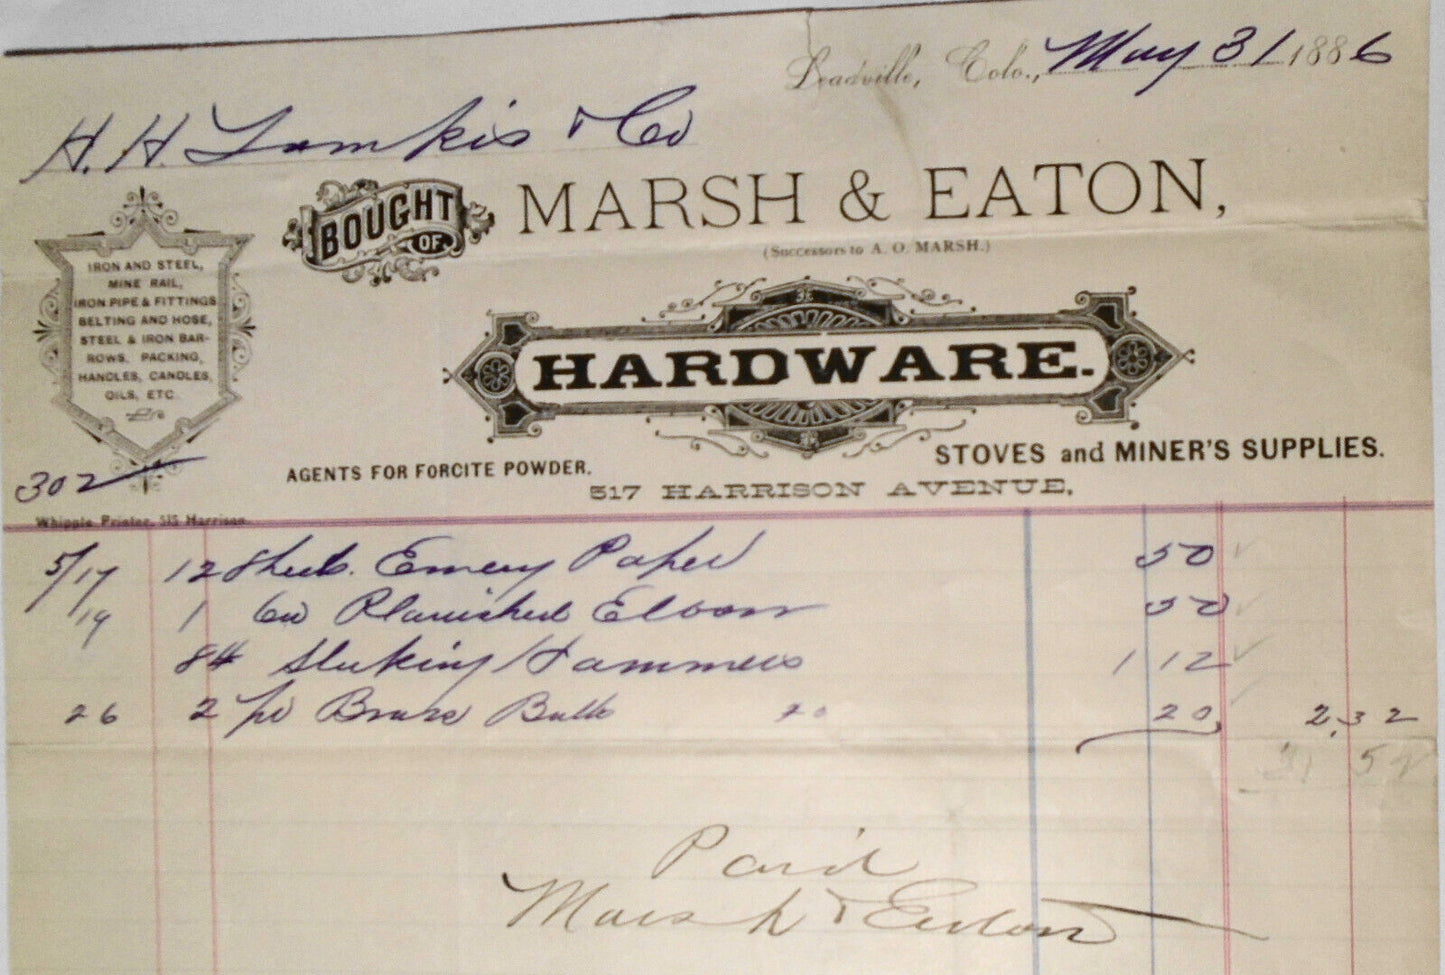 Leadville, Colo., May 31 1886
H. H. Tomkis & Co
BOUGHT OF MARSH & EATON,
(Successors to A. O. MARSH.)
IRON AND STEEL,
MINE RAIL,
IRON PIPE & FITTINGS
BELTING AND HOSE,
STEEL & IRON BAR-
ROWS, PACKING,
HANDLES, CANDLES,
OILS, ETC.
HARDWARE.
STOVES and MINER'S SUPPLIES.
AGENTS FOR FORCITE POWDER.
517 HARRISON AVENUE,
302
Whipple Printer, 515 Harrison
5/17 12 Sheets Emery Paper 50
19 1 6in Planished Elbow 50
8# Striking Hammers 1 12
26 2 pr Brass Butts 20 20 2.32
Paid
Marsh & Eaton